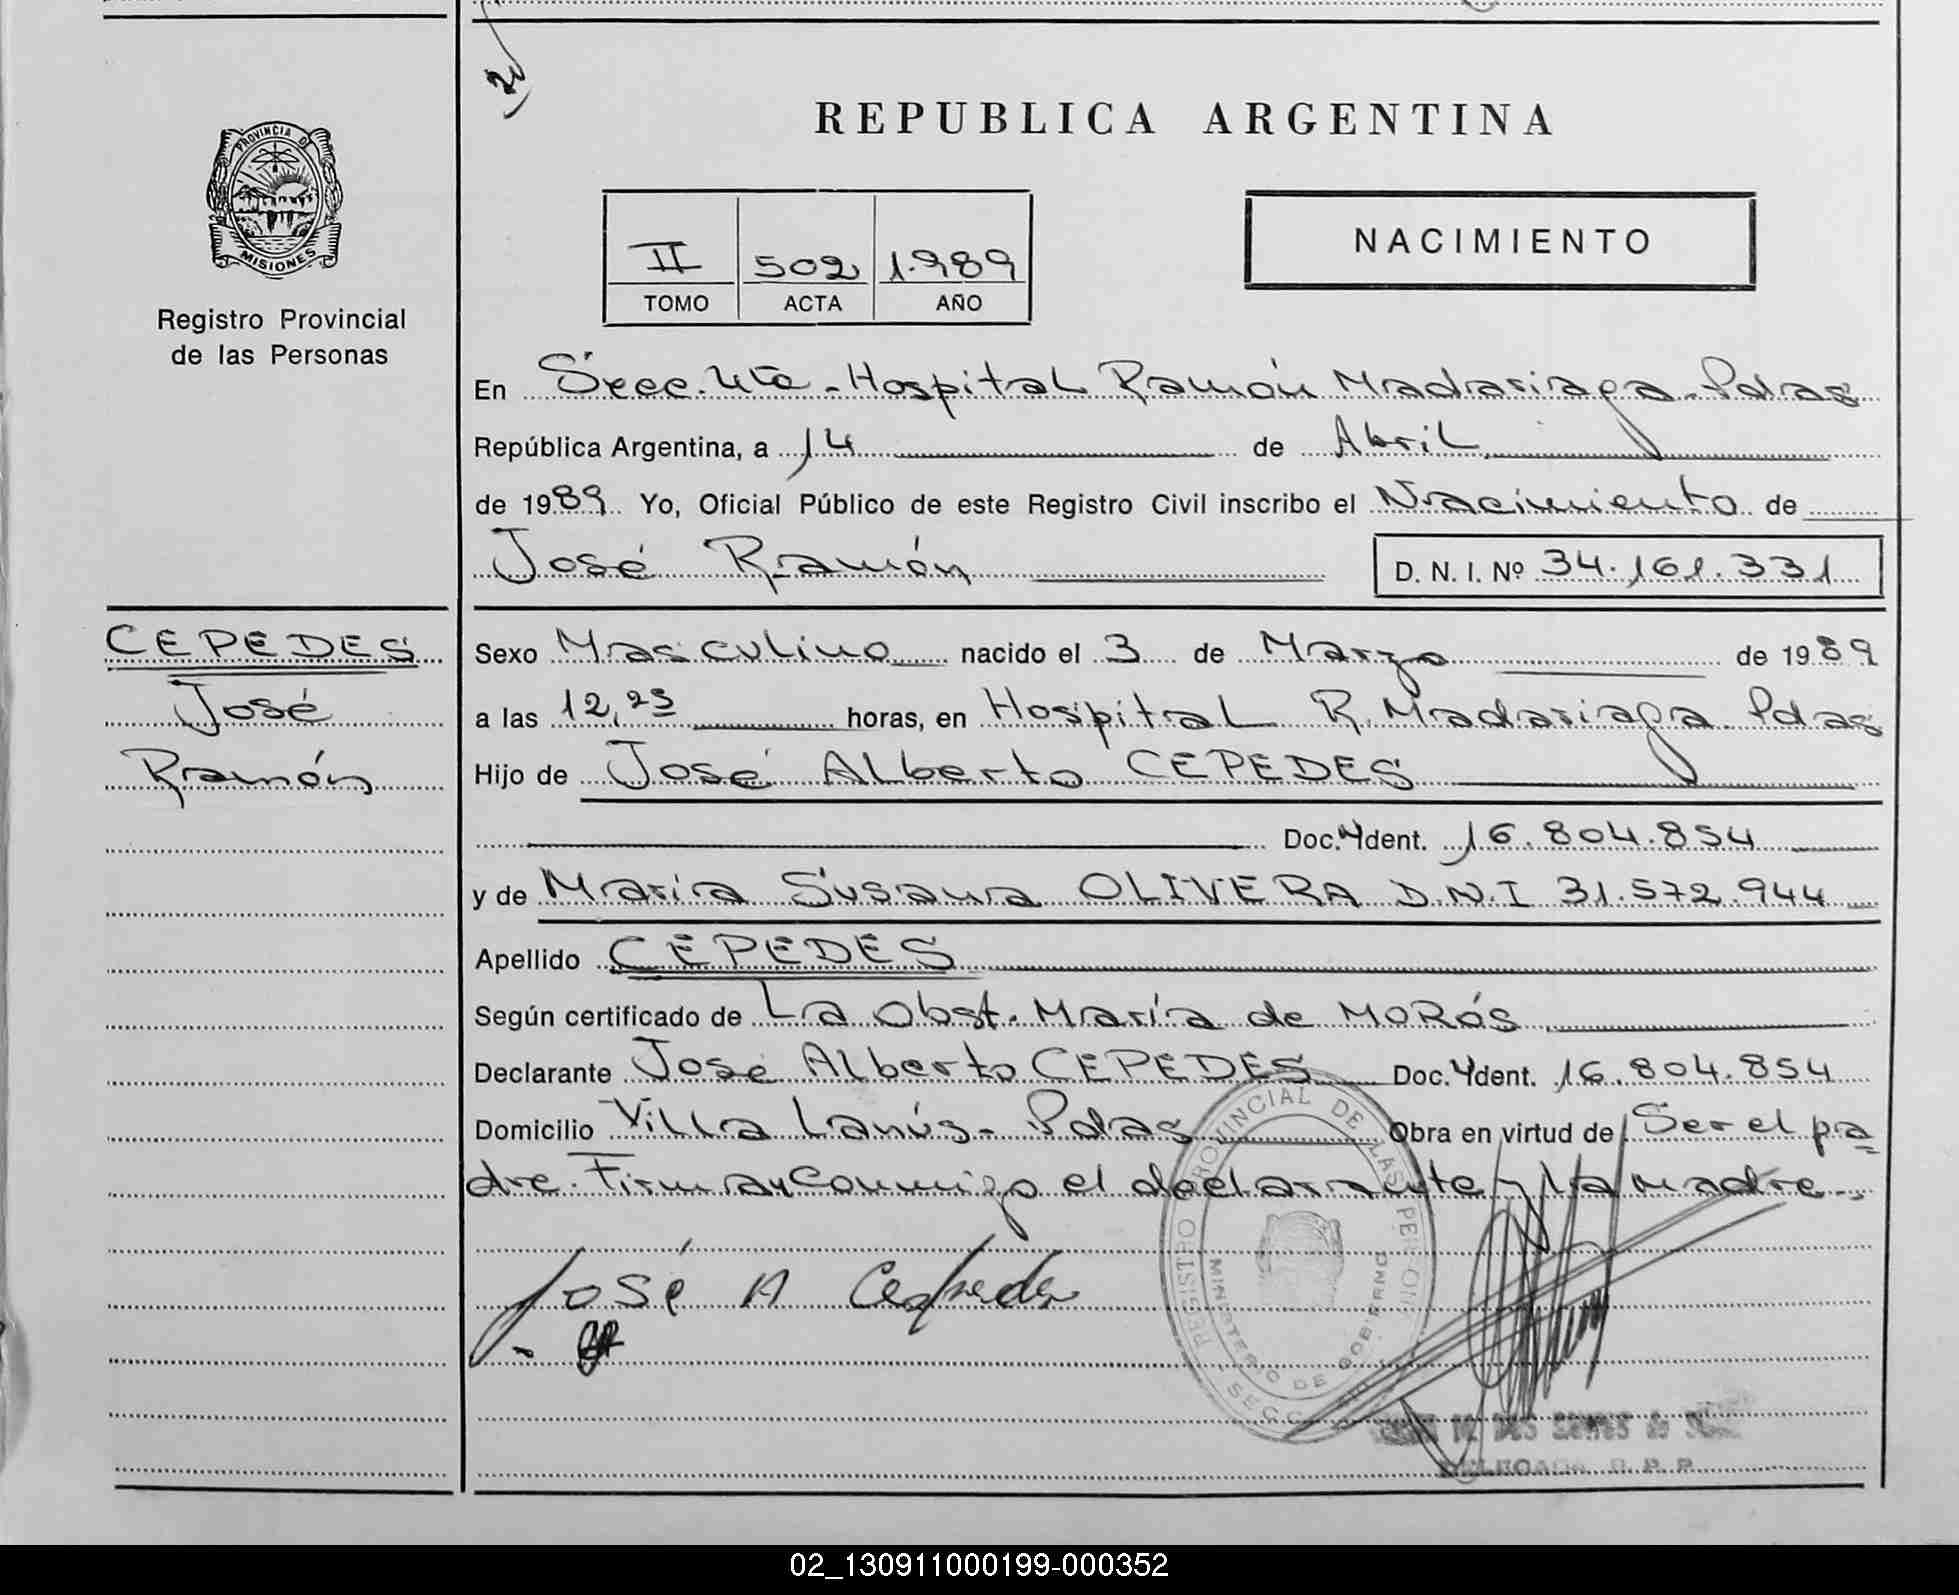 REPUBLICA ARGENTINA
PROVINCIA DE
MISIONES
Registro Provincial
de las Personas
NACIMIENTO
II 502 1.989
TOMO ACTA AÑO
En Secc. 4ta - Hospital Ramón Madariaga - Pdas
República Argentina, a 14 de Abril
de 1989 Yo, Oficial Público de este Registro Civil inscribo el Nacimiento de
José Ramón D. N. I. Nº 34.161.331
CEPEDES
José
Ramón
Sexo Masculino nacido el 3 de Marzo de 1989
a las 12,25 horas, en Hospital R. Madariaga Pdas
Hijo de José Alberto CEPEDES
Doc. Ident. 16.804.854
y de María Susana OLIVERA D.N.I 31.572.944
Apellido CEPEDES
Según certificado de La Obst. María de MORós
Declarante José Alberto CEPEDES Doc. Ident. 16.804.854
Domicilio Villa Lanús - Pdas Obra en virtud de Ser el pa
dre. Firman Conmigo el declarante y la madre.-
José A Cepedes
REGISTRO PROVINCIAL DE LAS PERSONAS
MINISTERIO DE GOBIERNO
DELEGADA R. P. P.
02_130911000199-000352